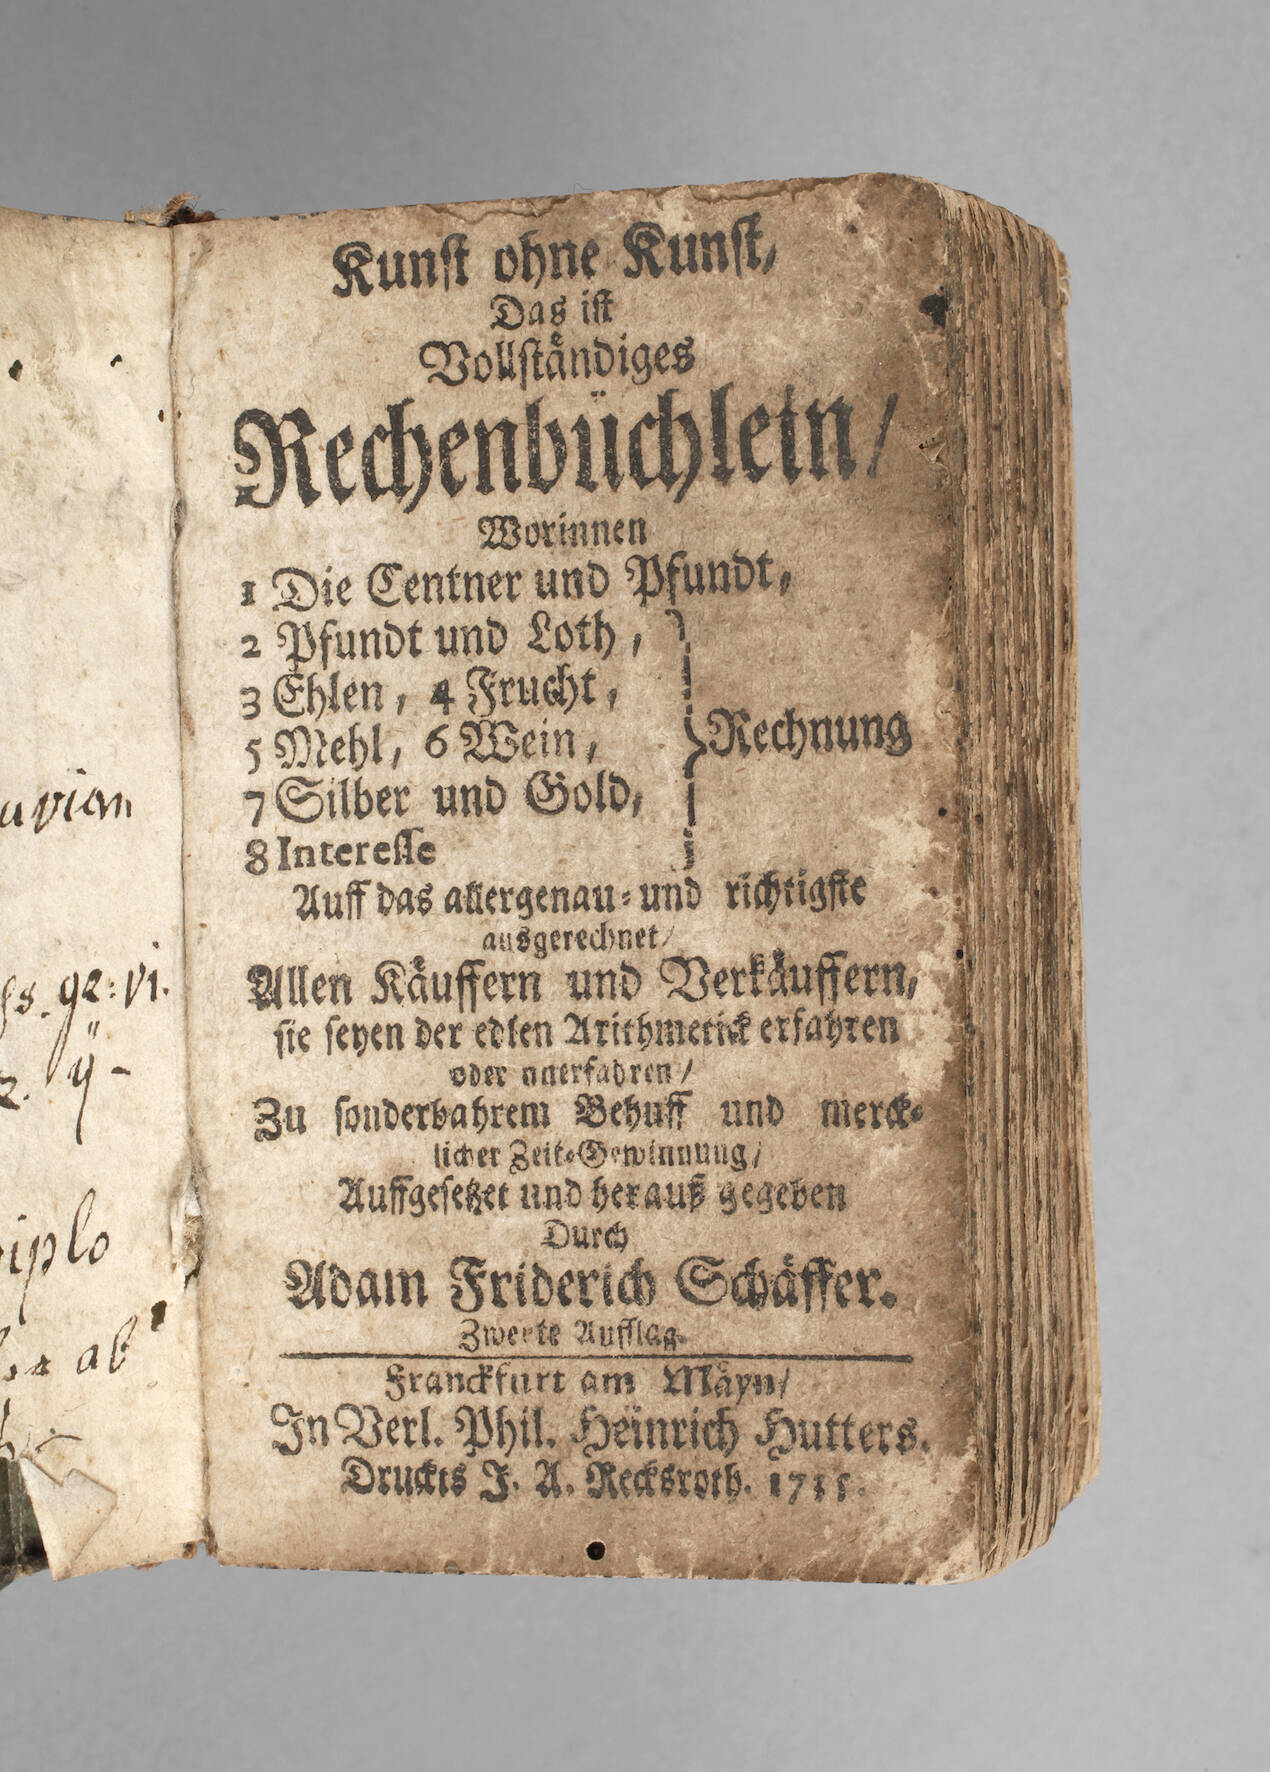 Kunst ohne Kunst,
Das ist
Vollständiges
Rechenbüchlein/
Worinnen
1 Die Centner und Pfundt,
2 Pfundt und Loth,
3 Ehlen, 4 Frucht,
5 Mehl, 6 Wein,
7 Silber und Gold,
8 Interesse
Rechnung
Auff das allergenau- und richtigste
ausgerechnet/
Allen Käuffern und Verkäuffern,
sie seyen der edlen Arithmetick erfahren
oder unerfahren/
Zu sonderbahrem Behuff und merck-
licher Zeit-Gewinnung/
Auffgesetzet und herauß gegeben
Durch
Adam Friderich Schäffer.
Zweyte Aufflag.
Franckfurt am Mäyn/
In Verl. Phil. Heinrich Hutters.
Druckts J. A. Recksroth.
ab